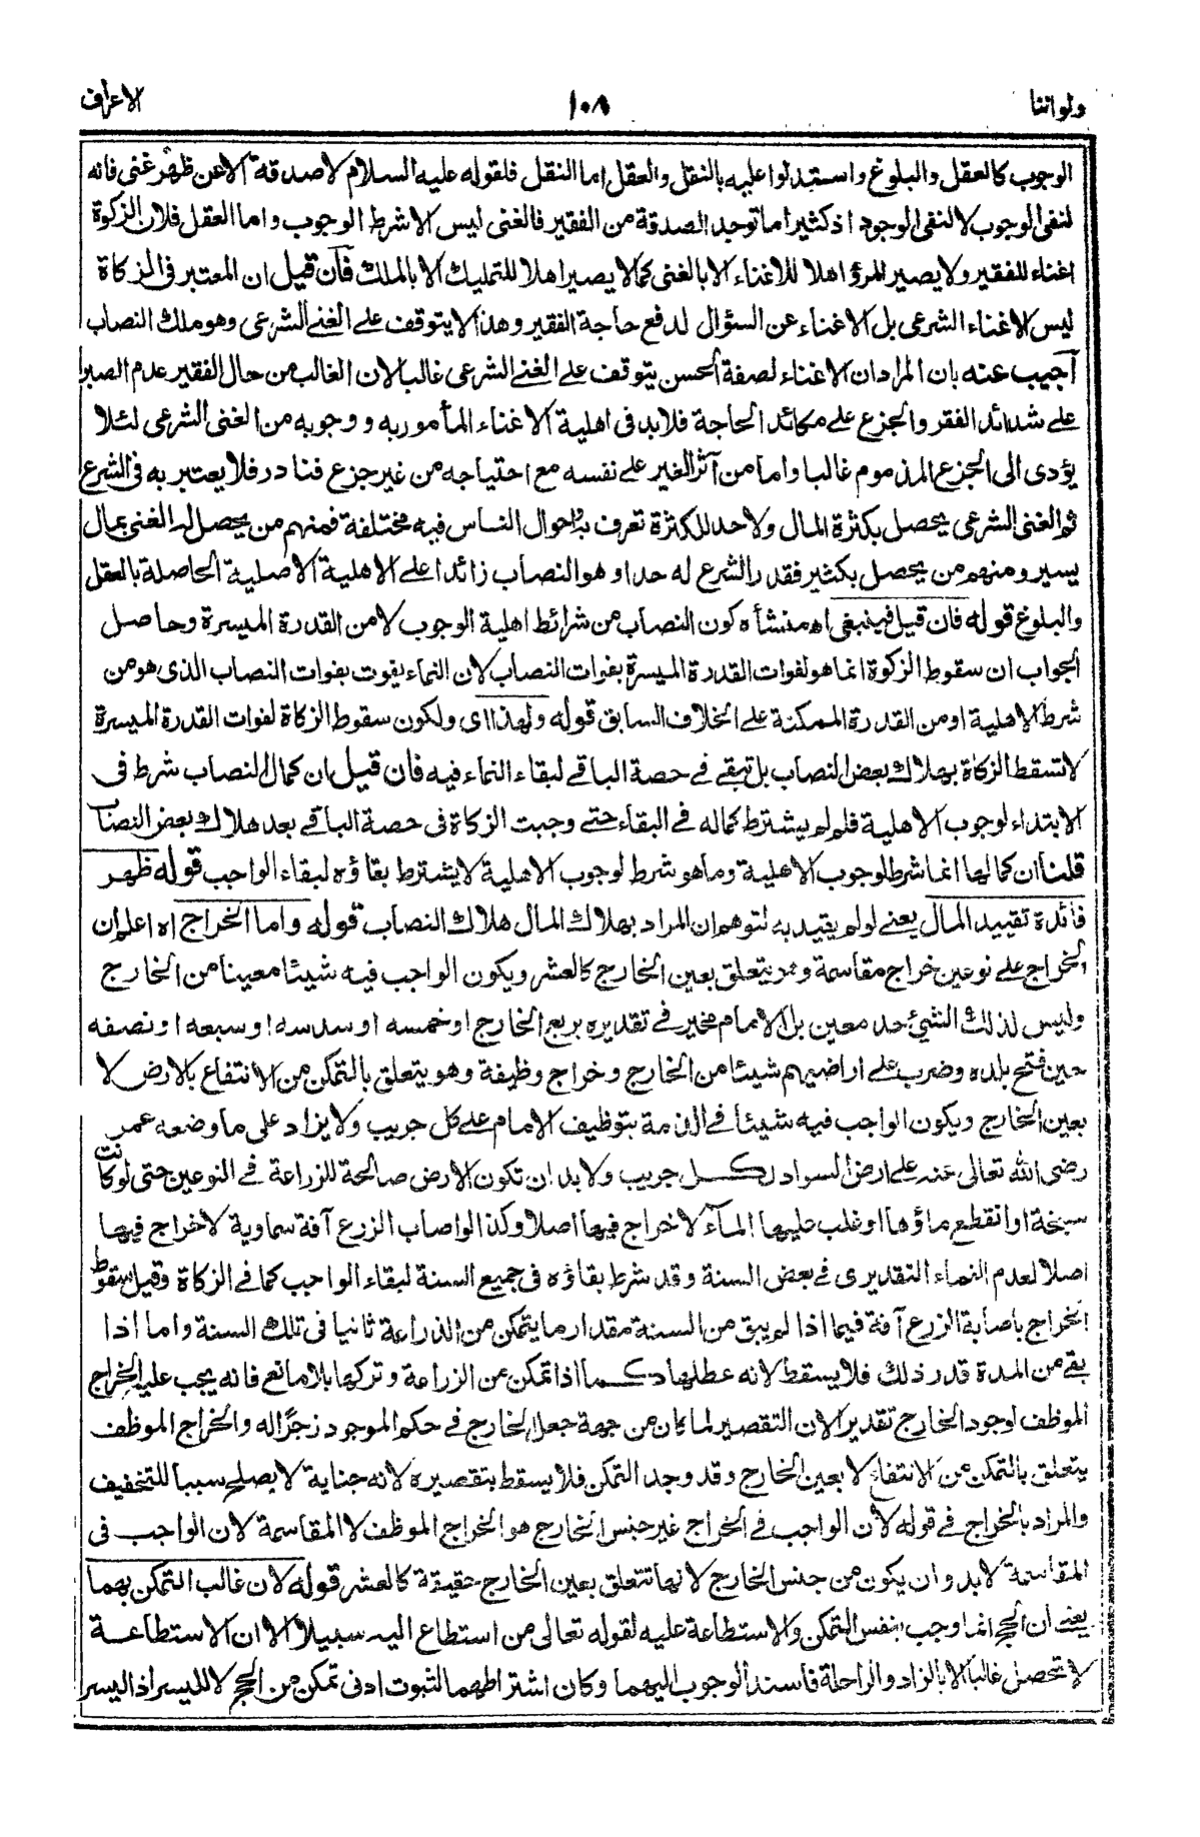 ولواننا ١٠٨ الاعراف
الوجوب كالعقل والبلوغ واستبدلوا عليه بالنقل والعقل اما النقل فلقوله عليه السلام لا صدقة الا عن ظهر غنى فانه
لنفى الوجوب لا لنفى الوجود اذ كثيرا ما توجد الصدقة من الفقير فالغنى ليس الا شرط الوجوب واما العقل فلان الزكوة
اغناء للفقير ولا يصير المرؤ اهلا للاغناء الا بالغنى كما لا يصير اهلا للتمليك الا بالملك فان قيل ان المعتبر فى الزكاة
ليس الاغناء الشرعى بل الاغناء عن السؤال لدفع حاجة الفقير وهذا لا يتوقف على الغنى الشرعى وهو ملك النصاب
آجيب عنه بان المراد ان الاغناء لصفة الحسن يتوقف على الغنى الشرعى غالبا لان الغالب من حال الفقير عدم الصبر
على شدائد الفقر والجزع على مكائد الحاجة فلا بد فى اهلية الاغناء المأمور به ووجوبه من الغنى الشرعى لئلا
يؤدى الى الجزع المذموم غالبا واما من آثر الغير على نفسه مع احتياجه من غير جزع فنادر فلا يعتبر به فى الشرع
ثم الغنى الشرعى يحصل بكثرة المال ولا حد للكثرة تعرف به واحوال الناس فيه مختلفة فمنهم من يحصل له الغنى بمال
يسير ومنهم من يحصل بكثير فقدر الشرع له حدا وهو النصاب زائدا على الاهلية الاصلية الحاصلة بالعقل
والبلوغ قوله فان قيل فينبغى اه منشأه كون النصاب من شرائط اهلية الوجوب لا من القدرة الميسرة وحاصل
الجواب ان سقوط الزكوة انما هو لفوات القدرة الميسرة بفوات النصاب لان النماء يفوت بفوات النصاب الذى هو من
شرط الاهلية او من القدرة الممكنة على الخلاف السابق قوله ولهذا اى ولكون سقوط الزكاة لفوات القدرة الميسرة
لا تسقط الزكاة بهلاك بعض النصاب بل تبقى فى حصة الباقى لبقاء النماء فيه فان قيل ان كمال النصاب شرط فى
الابتداء لوجوب الاهلية فلم لم يشترط كماله فى البقاء حتى وجبت الزكاة فى حصة الباقى بعد هلاك بعض النصاب
قلنا ان كمالها انما شرط لوجوب الاهلية وما هو شرط لوجوب الاهلية لا يشترط بقاؤه لبقاء الواجب قوله ظهر
فائدة تقييد المال يعنى لو لم يقيد به لتوهم ان المراد بهلاك المال هلاك النصاب قوله واما الخراج اه اعلم ان
الخراج على نوعين خراج مقاسمة وهو يتعلق بعين الخارج كالعشر ويكون الواجب فيه شيئا معينا من الخارج
وليس لذلك الشئ حد معين بل الامام مخير فى تقديره بربع الخارج او خمسه او سدسه او سبعه او نصفه
حين فتح بلده وضرب على اراضيهم شيئا من الخارج وخراج وظيفة وهو يتعلق بالتمكن من الانتفاع بالارض لا
بعين الخارج ويكون الواجب فيه شيئا فى الذمة بتوظيف الامام على كل جريب ولا يزاد على ما وضعه عمر
رضى الله تعالى عنه على ارض السواد لكل جريب ولا بد ان تكون الارض صالحة للزراعة فى النوعين حتى لو كانت
سبخة او انقطع ماؤها او غلب عليها المآء لا خراج فيها اصلا وكذا لو اصاب الزرع آفة سماوية لا خراج فيها
اصلا لعدم النماء التقديرى فى بعض السنة وقد شرط بقاؤه فى جميع السنة لبقاء الواجب كما فى الزكاة وقيل سقوط
الخراج باصابة الزرع آفة فيما اذا لم يبق من السنة مقدار ما يتمكن من الذراعة ثانيا فى تلك السنة واما اذا
بقى من المدة قدر ذلك فلا يسقط لانه عطلها كما اذا تمكن من الزراعة وتركها بلا مانع فانه يجب عليه الخراج
الموظف لوجود الخارج تقديرا لان التقصير لما كان من جهة جعل الخارج فى حكم الموجود زجرًا له والخراج الموظف
يتعلق بالتمكن من الانتفاع لا بعين الخارج وقد وجد التمكن فلا يسقط بتقصيره لانه جناية لا يصلح سببا للتخفيف
والمراد بالخراج فى قوله لان الواجب فى الخراج غير جنس الخارج هو الخراج الموظف لا المقاسمة لان الواجب فى
المقاسمة لا بد وان يكون من جنس الخارج لانها تتعلق بعين الخارج حقيقة كالعشر قوله لان غالب التمكن بهما
يعنى ان الحج انما وجب بنفس التمكن والاستطاعة عليه لقوله تعالى من استطاع اليه سبيلا الا ان الاستطاعة
لا تحصل غالبا الا بالزاد والراحلة فاسند الوجوب اليهما وكان اشتراطهما لثبوت ادنى تمكن من الحج لا لليسر اذ اليسر